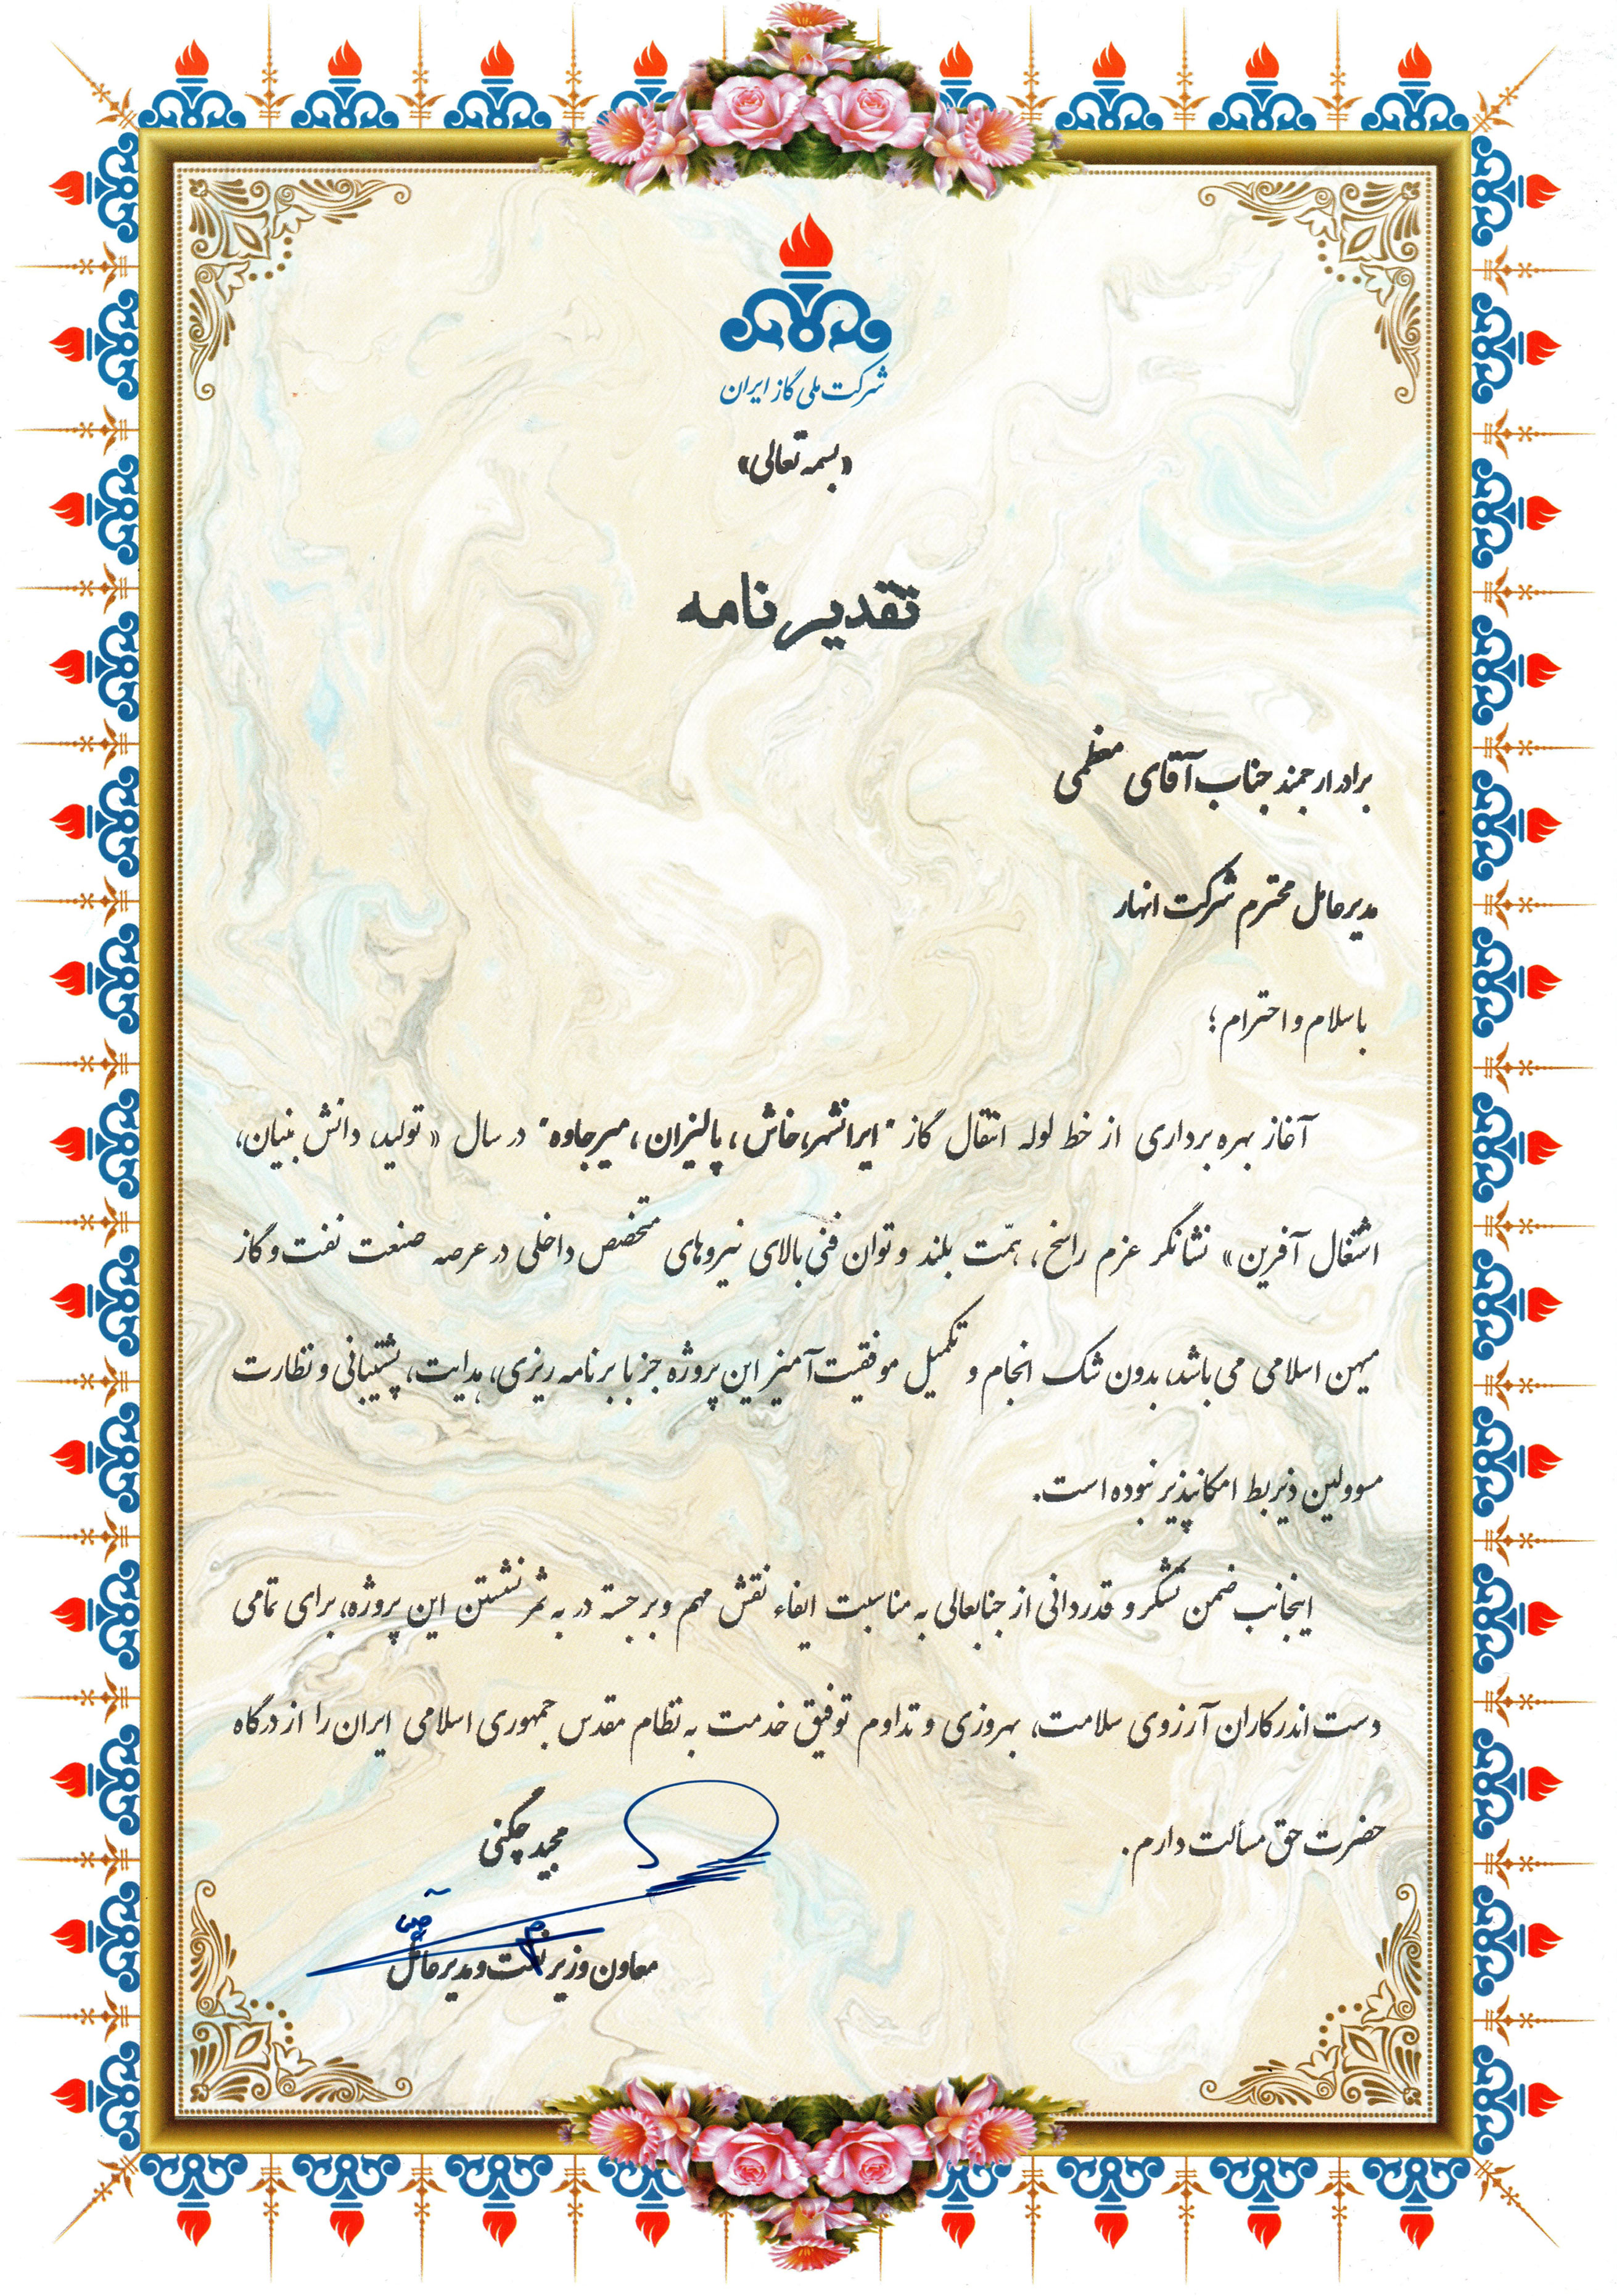 شرکت ملی گاز ایران
«بسمه تعالی»
تقدیرنامه
برادر ارجمند جناب آقای معظمی
مدیرعامل محترم شرکت انهار
باسلام و احترام؛
آغاز بهره برداری از خط لوله انتقال گاز "ایرانشهر،خاش، پالیزان، میرجاوه" در سال « تولید، دانش بنیان،
اشتغال آفرین» نشانگر عزم راسخ، همّت بلند و توان فنی بالای نیروهای متخصص داخلی در عرصه صنعت نفت و گاز
میهن اسلامی می باشد، بدون شک انجام و تکمیل موفقیت آمیز این پروژه جز با برنامه ریزی، هدایت، پشتیبانی و نظارت
مسوولین ذیربط امکانپذیر نبوده است.
اینجانب ضمن تشکر و قدردانی از جنابعالی به مناسبت ایفاء نقش مهم و برجسته در به ثمر نشستن این پروژه، برای تمامی
دست اندرکاران آرزوی سلامت، بهروزی و تداوم توفیق خدمت به نظام مقدس جمهوری اسلامی ایران را از درگاه
حضرت حق مسألت دارم.
مجید چگنی
معاون وزیر نفت و مدیرعامل